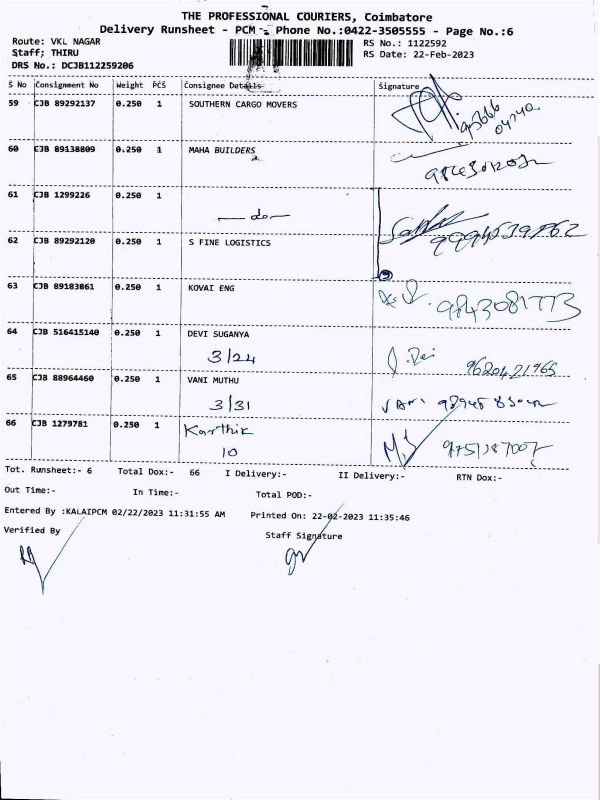 THE PROFESSIONAL COURIERS, Coimbatore
Delivery Runsheet - PCM - Phone No.:0422-3505555 - Page No.:6
Route: VKL NAGAR RS No.: 1122592
Staff: THIRU RS Date: 22-Feb-2023
DRS No.: DCJB112259206
S No Consignment No Weight PCS Consignee Details Signature
59 CJB 89292137 0.250 1 SOUTHERN CARGO MOVERS
60 CJB 89138809 0.250 1 MAHA BUILDERS
61 CJB 1299226 0.250 1
—do—
62 CJB 89292120 0.250 1 S FINE LOGISTICS
63 CJB 89183861 0.250 1 KOVAI ENG
9843081773
64 CJB 516415140 0.250 1 DEVI SUGANYA
3/24
65 CJB 88964460 0.250 1 VANI MUTHU
3/31
66 CJB 1279781 0.250 1 Karthik
10
Tot. Runsheet:- 6 Total Dox:- 66 I Delivery:- II Delivery:- RTN Dox:-
Out Time:- In Time:- Total POD:-
Entered By :KALAIPCM 02/22/2023 11:31:55 AM Printed On: 22-02-2023 11:35:46
Verified By Staff Signature